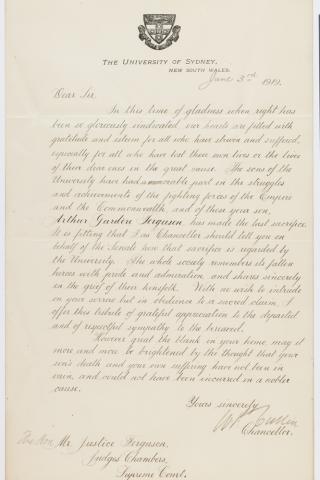 THE UNIVERSITY OF SYDNEY,
NEW SOUTH WALES.
June 3rd 1919.
Dear Sir
In this time of gladness when right has
been so gloriously vindicated our hearts are filled with
gratitude and esteem for all who have striven and suffered,
especially for all who have lost their own lives or the lives
of their dear ones in the great cause. The sons of the
University have had a memorable part in the struggles
and achievements of the fighting forces of the Empire
and the Commonwealth and of these your son,
Arthur Gardere Ferguson, has made the last sacrifice.
It is fitting that I as Chancellor should tell you on
behalf of the Senate how that sacrifice is regarded by
the University. The whole society remembers its fallen
heroes with pride and admiration, and shares sincerely
in the grief of their kinsfolk. With no wish to intrude
on your sorrow but in obedience to a sacred claim, I
offer this tribute of grateful appreciation to the departed
and of respectful sympathy to the bereaved.
However great the blank in your home may it
more and more be brightened by the thought that your
son's death and your own suffering have not been in
vain, and could not have been incurred in a nobler
cause.
Yours sincerely
Cullen
Chancellor.
The Hon. Mr. Justice Ferguson,
Judges Chambers,
Supreme Court.